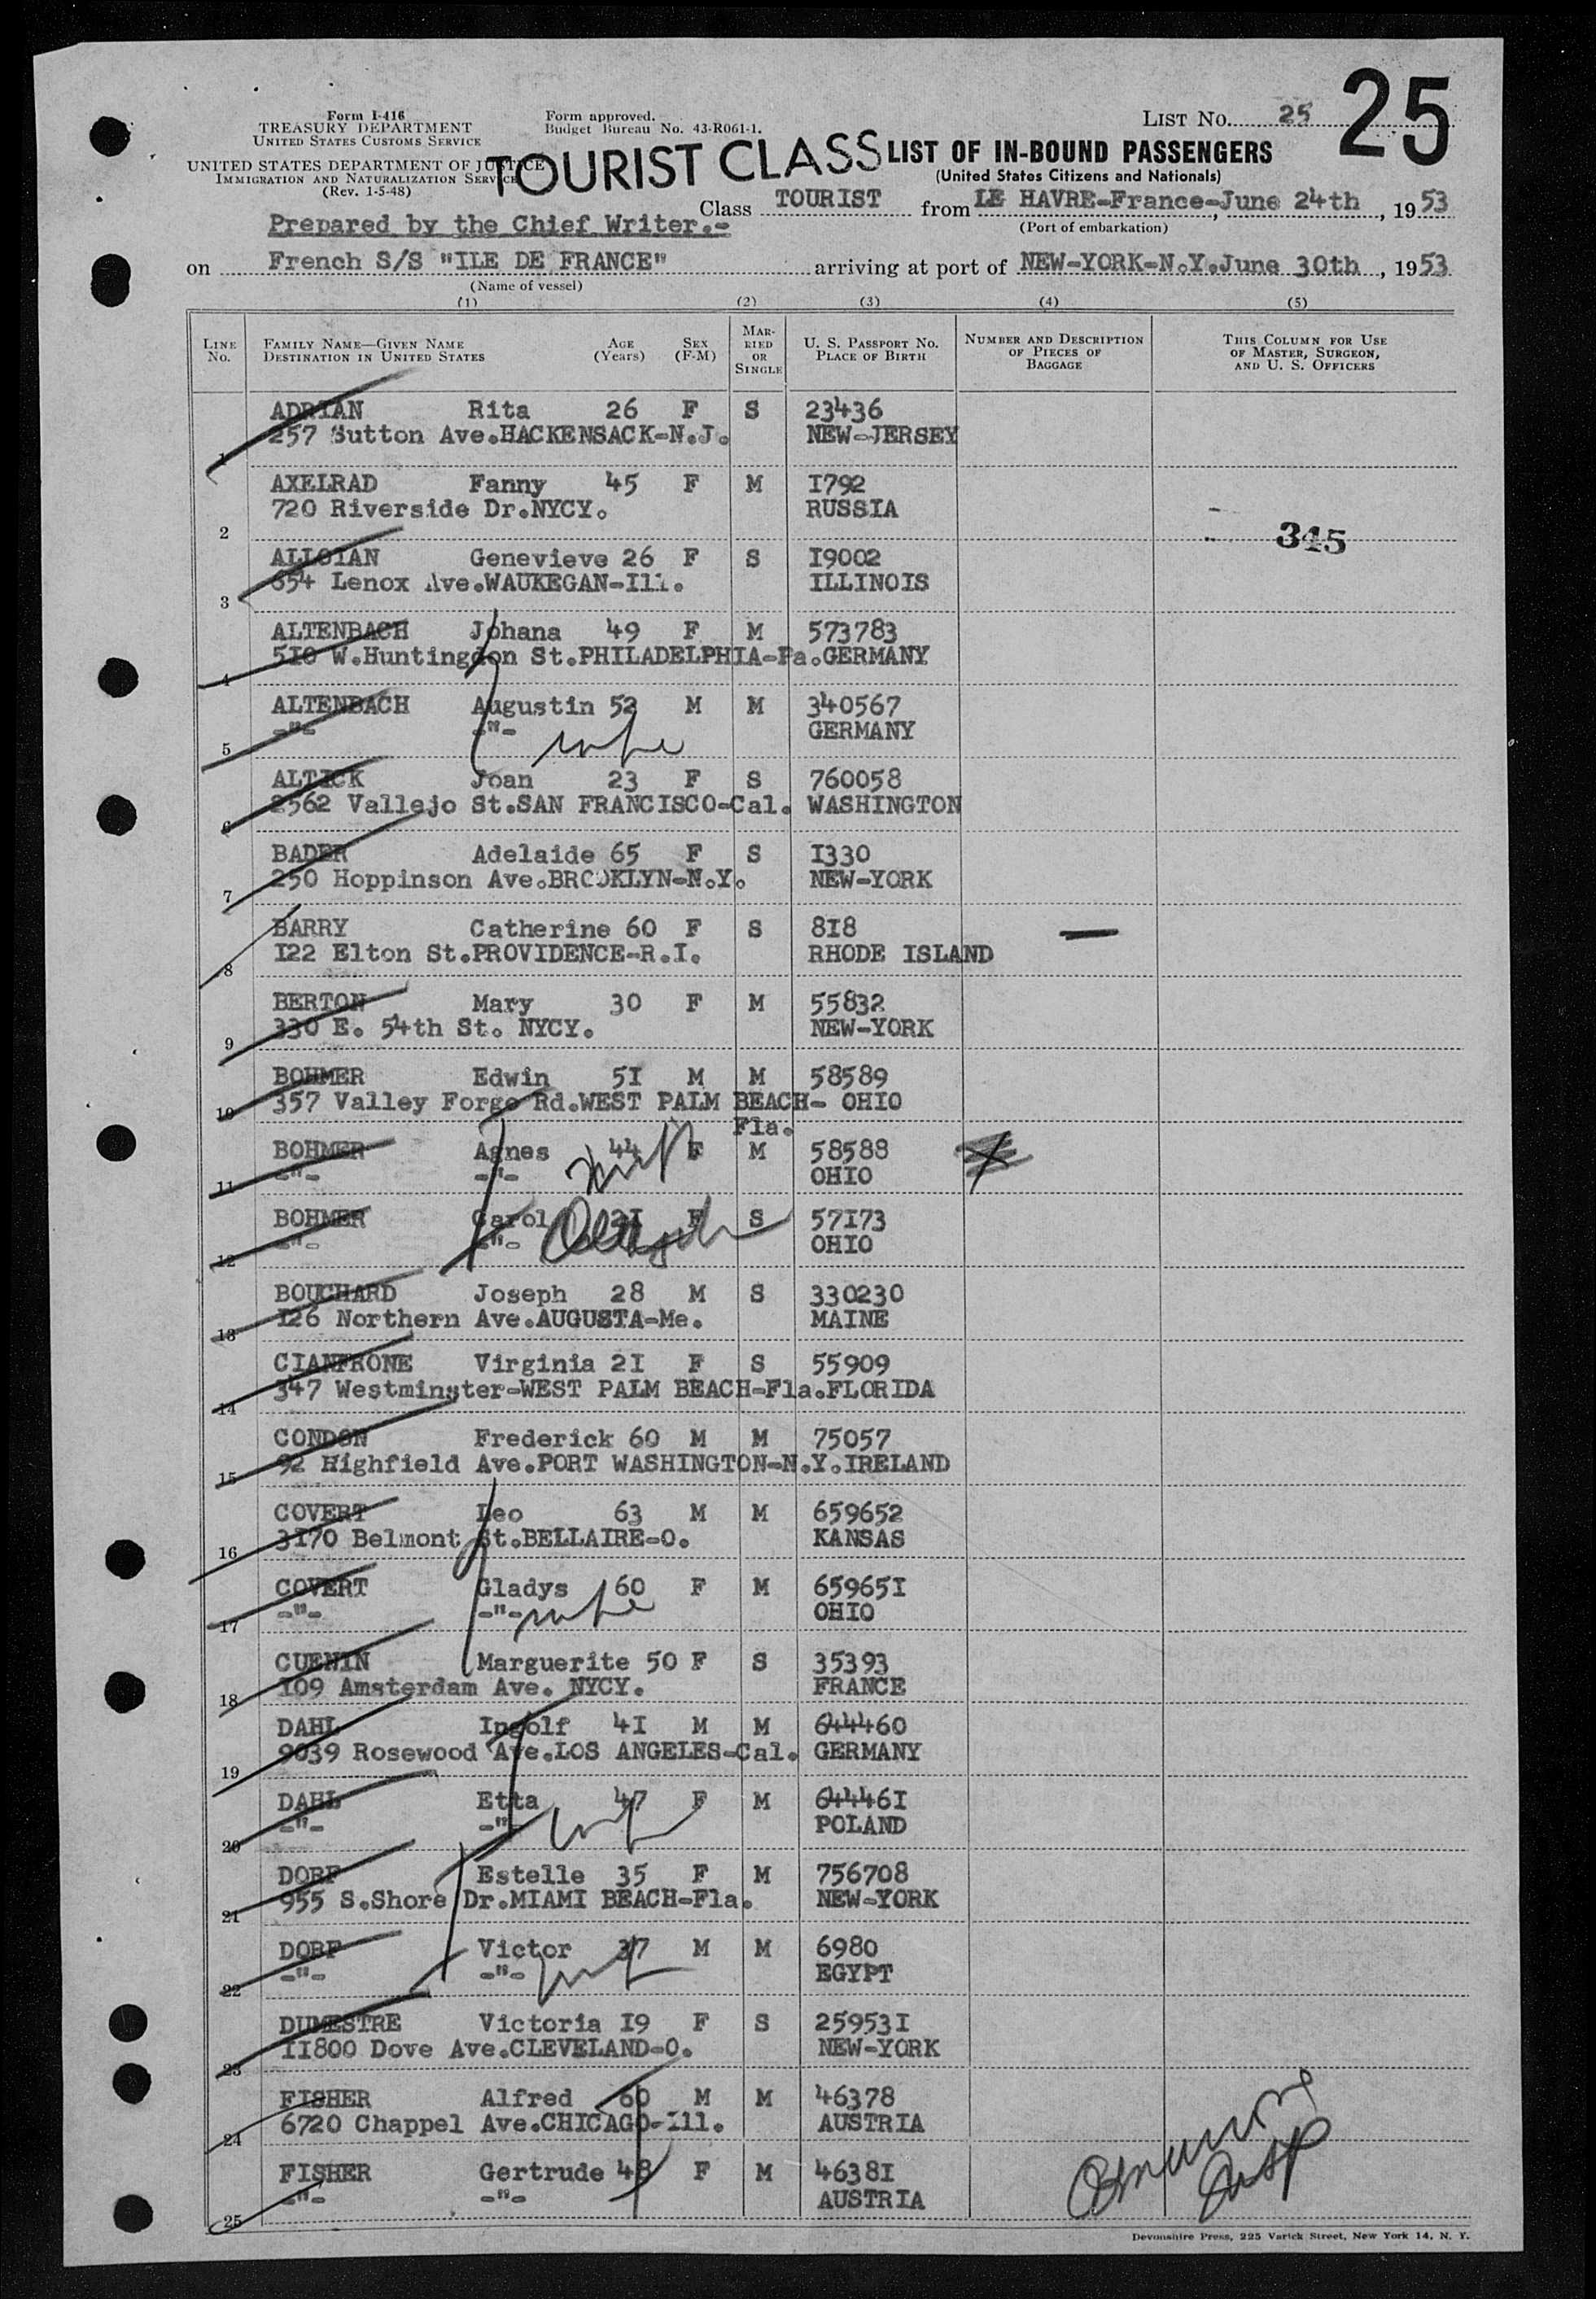 25
Form I-416
TREASURY DEPARTMENT
UNITED STATES CUSTOMS SERVICE
Form approved.
Budget Bureau No. 43-R061-1.
LIST No. 25
UNITED STATES DEPARTMENT OF JUSTICE
IMMIGRATION AND NATURALIZATION SERVICE
(Rev. 1-5-48)
TOURIST CLASS
LIST OF IN-BOUND PASSENGERS
(United States Citizens and Nationals)
Class TOURIST from LE HAVRE-France-, June 24th, 1953
(Port of embarkation)
Prepared by the Chief Writer.-
on French S/S "ILE DE FRANCE" arriving at port of NEW-YORK-N.Y. June 30th, 1953
(Name of vessel)
(1) (2) (3) (4) (5)
LINE No. FAMILY NAME—GIVEN NAME DESTINATION IN UNITED STATES AGE (Years) SEX (F-M) MARRIED OR SINGLE U. S. PASSPORT NO. PLACE OF BIRTH NUMBER AND DESCRIPTION OF PIECES OF BAGGAGE THIS COLUMN FOR USE OF MASTER, SURGEON, AND U. S. OFFICERS
ADRIAN Rita 26 F S 23436
1 257 Sutton Ave.HACKENSACK-N.J. NEW-JERSEY
AXELRAD Fanny 45 F M I792
2 720 Riverside Dr.NYCY. RUSSIA
345
ALLOIAN Genevieve 26 F S I9002
3 654 Lenox Ave.WAUKEGAN-Ill. ILLINOIS
ALTENBACH Johana 49 F M 573783
4 5I0 W.Huntingdon St.PHILADELPHIA-Pa.GERMANY
ALTENBACH Augustin 52 M M 340567
5 -"- -"- GERMANY
ALTICK Joan 23 F S 760058
6 2562 Vallejo St.SAN FRANCISCO-Cal. WASHINGTON
BADER Adelaide 65 F S I330
7 250 Hoppinson Ave.BROOKLYN-N.Y. NEW-YORK
BARRY Catherine 60 F S 8I8
8 I22 Elton St.PROVIDENCE-R.I. RHODE ISLAND
BERTON Mary 30 F M 55832
9 330 E. 54th St. NYCY. NEW-YORK
BOHMER Edwin 5I M M 58589
10 357 Valley Forge Rd.WEST PALM BEACH- OHIO
Fla.
BOHMER Agnes 44 F M 58588
11 -"- -"- OHIO
BOHMER Carol 2I F S 57I73
12 -"- -"- OHIO
BOUCHARD Joseph 28 M S 330230
13 I26 Northern Ave.AUGUSTA-Me. MAINE
CIANFRONE Virginia 2I F S 55909
14 347 Westminster-WEST PALM BEACH-Fla.FLORIDA
CONDON Frederick 60 M M 75057
15 92 Highfield Ave.PORT WASHINGTON-N.Y.IRELAND
COVERT Leo 63 M M 659652
16 3I70 Belmont St.BELLAIRE-O. KANSAS
COVERT Gladys 60 F M 65965I
17 -"- -"- OHIO
CUENIN Marguerite 50 F S 35393
18 I09 Amsterdam Ave. NYCY. FRANCE
DAHL Ingolf 4I M M 644460
19 9039 Rosewood Ave.LOS ANGELES-Cal. GERMANY
DAHL Etta 47 F M 64446I
20 -"- -"- POLAND
DORF Estelle 35 F M 756708
21 955 S.Shore Dr.MIAMI BEACH-Fla. NEW-YORK
DORF Victor 37 M M 6980
22 -"- -"- EGYPT
DUMESTRE Victoria I9 F S 25953I
23 II800 Dove Ave.CLEVELAND-O. NEW-YORK
FISHER Alfred 60 M M 46378
24 6720 Chappel Ave.CHICAGO-Ill. AUSTRIA
FISHER Gertrude 48 F M 4638I
25 -"- -"- AUSTRIA
Devonshire Press, 225 Varick Street, New York 14, N. Y.